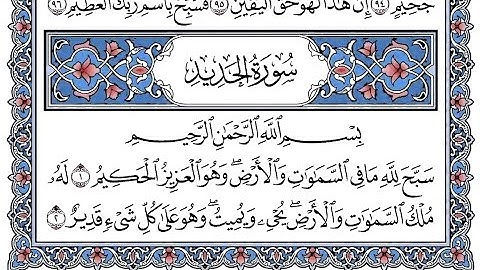 جَحِيمٍ ٩٤ إِنَّ هَٰذَا لَهُوَ حَقُّ ٱلْيَقِينِ ٩٥ فَسَبِّحْ بِٱسْمِ رَبِّكَ ٱلْعَظِيمِ ٩٦
سُورَةُ الحَدِيدِ
بِسْمِ ٱللَّهِ ٱلرَّحْمَٰنِ ٱلرَّحِيمِ
سَبَّحَ لِلَّهِ مَا فِى ٱلسَّمَٰوَٰتِ وَٱلْأَرْضِ ۖ وَهُوَ ٱلْعَزِيزُ ٱلْحَكِيمُ ١ لَهُۥ
مُلْكُ ٱلسَّمَٰوَٰتِ وَٱلْأَرْضِ ۖ يُحْىِۦ وَيُمِيتُ ۖ وَهُوَ عَلَىٰ كُلِّ شَىْءٍ قَدِيرٌ ٢